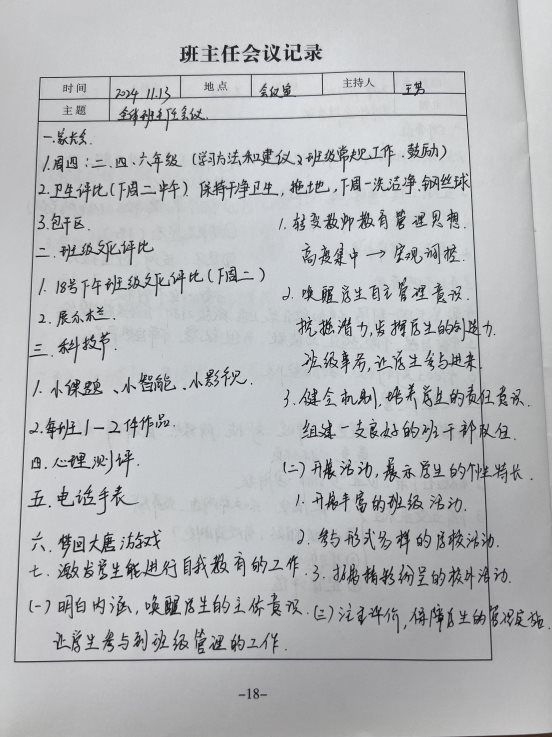 班主任会议记录
时间 2024.11.13 地点 会议室 主持人
主题 全体班主任会议
一.家长会.
1.周四:二.四.六年级(学习方法和建议、班级常规工作.鼓励)
2.卫生评比(下周二中午)保持干净卫生,拖地,下周一洗洁净.钢丝球
3.包干区.
二.班级文化评比
1.18号下午班级文化评比(下周二)
2.展示栏.
三.科技节.
1.小课题、小智能、小影视.
2.每班1-2件作品.
四.心理测评.
五.电话手表.
六.梦回大唐游戏
七.激发学生能进行自我教育的工作.
(一)明白内涵,唤醒学生的主体意识.
让学生参与到班级管理的工作.
1.转变教师教育管理思想.
高度集中→实现调控.
2.唤醒学生自主管理意识.
挖掘潜力,发挥学生的创造力.
班级事务,让学生参与进来.
3.健全机制,培养学生的责任意识.
组建一支良好的班干部队伍.
(二)开展活动,展示学生的个性特长.
1.开展丰富的班级活动.
2.参与形式多样的学校活动.
3.拓展精彩纷呈的校外活动.
(三)注重评价,保障学生的管理实施.
-18-